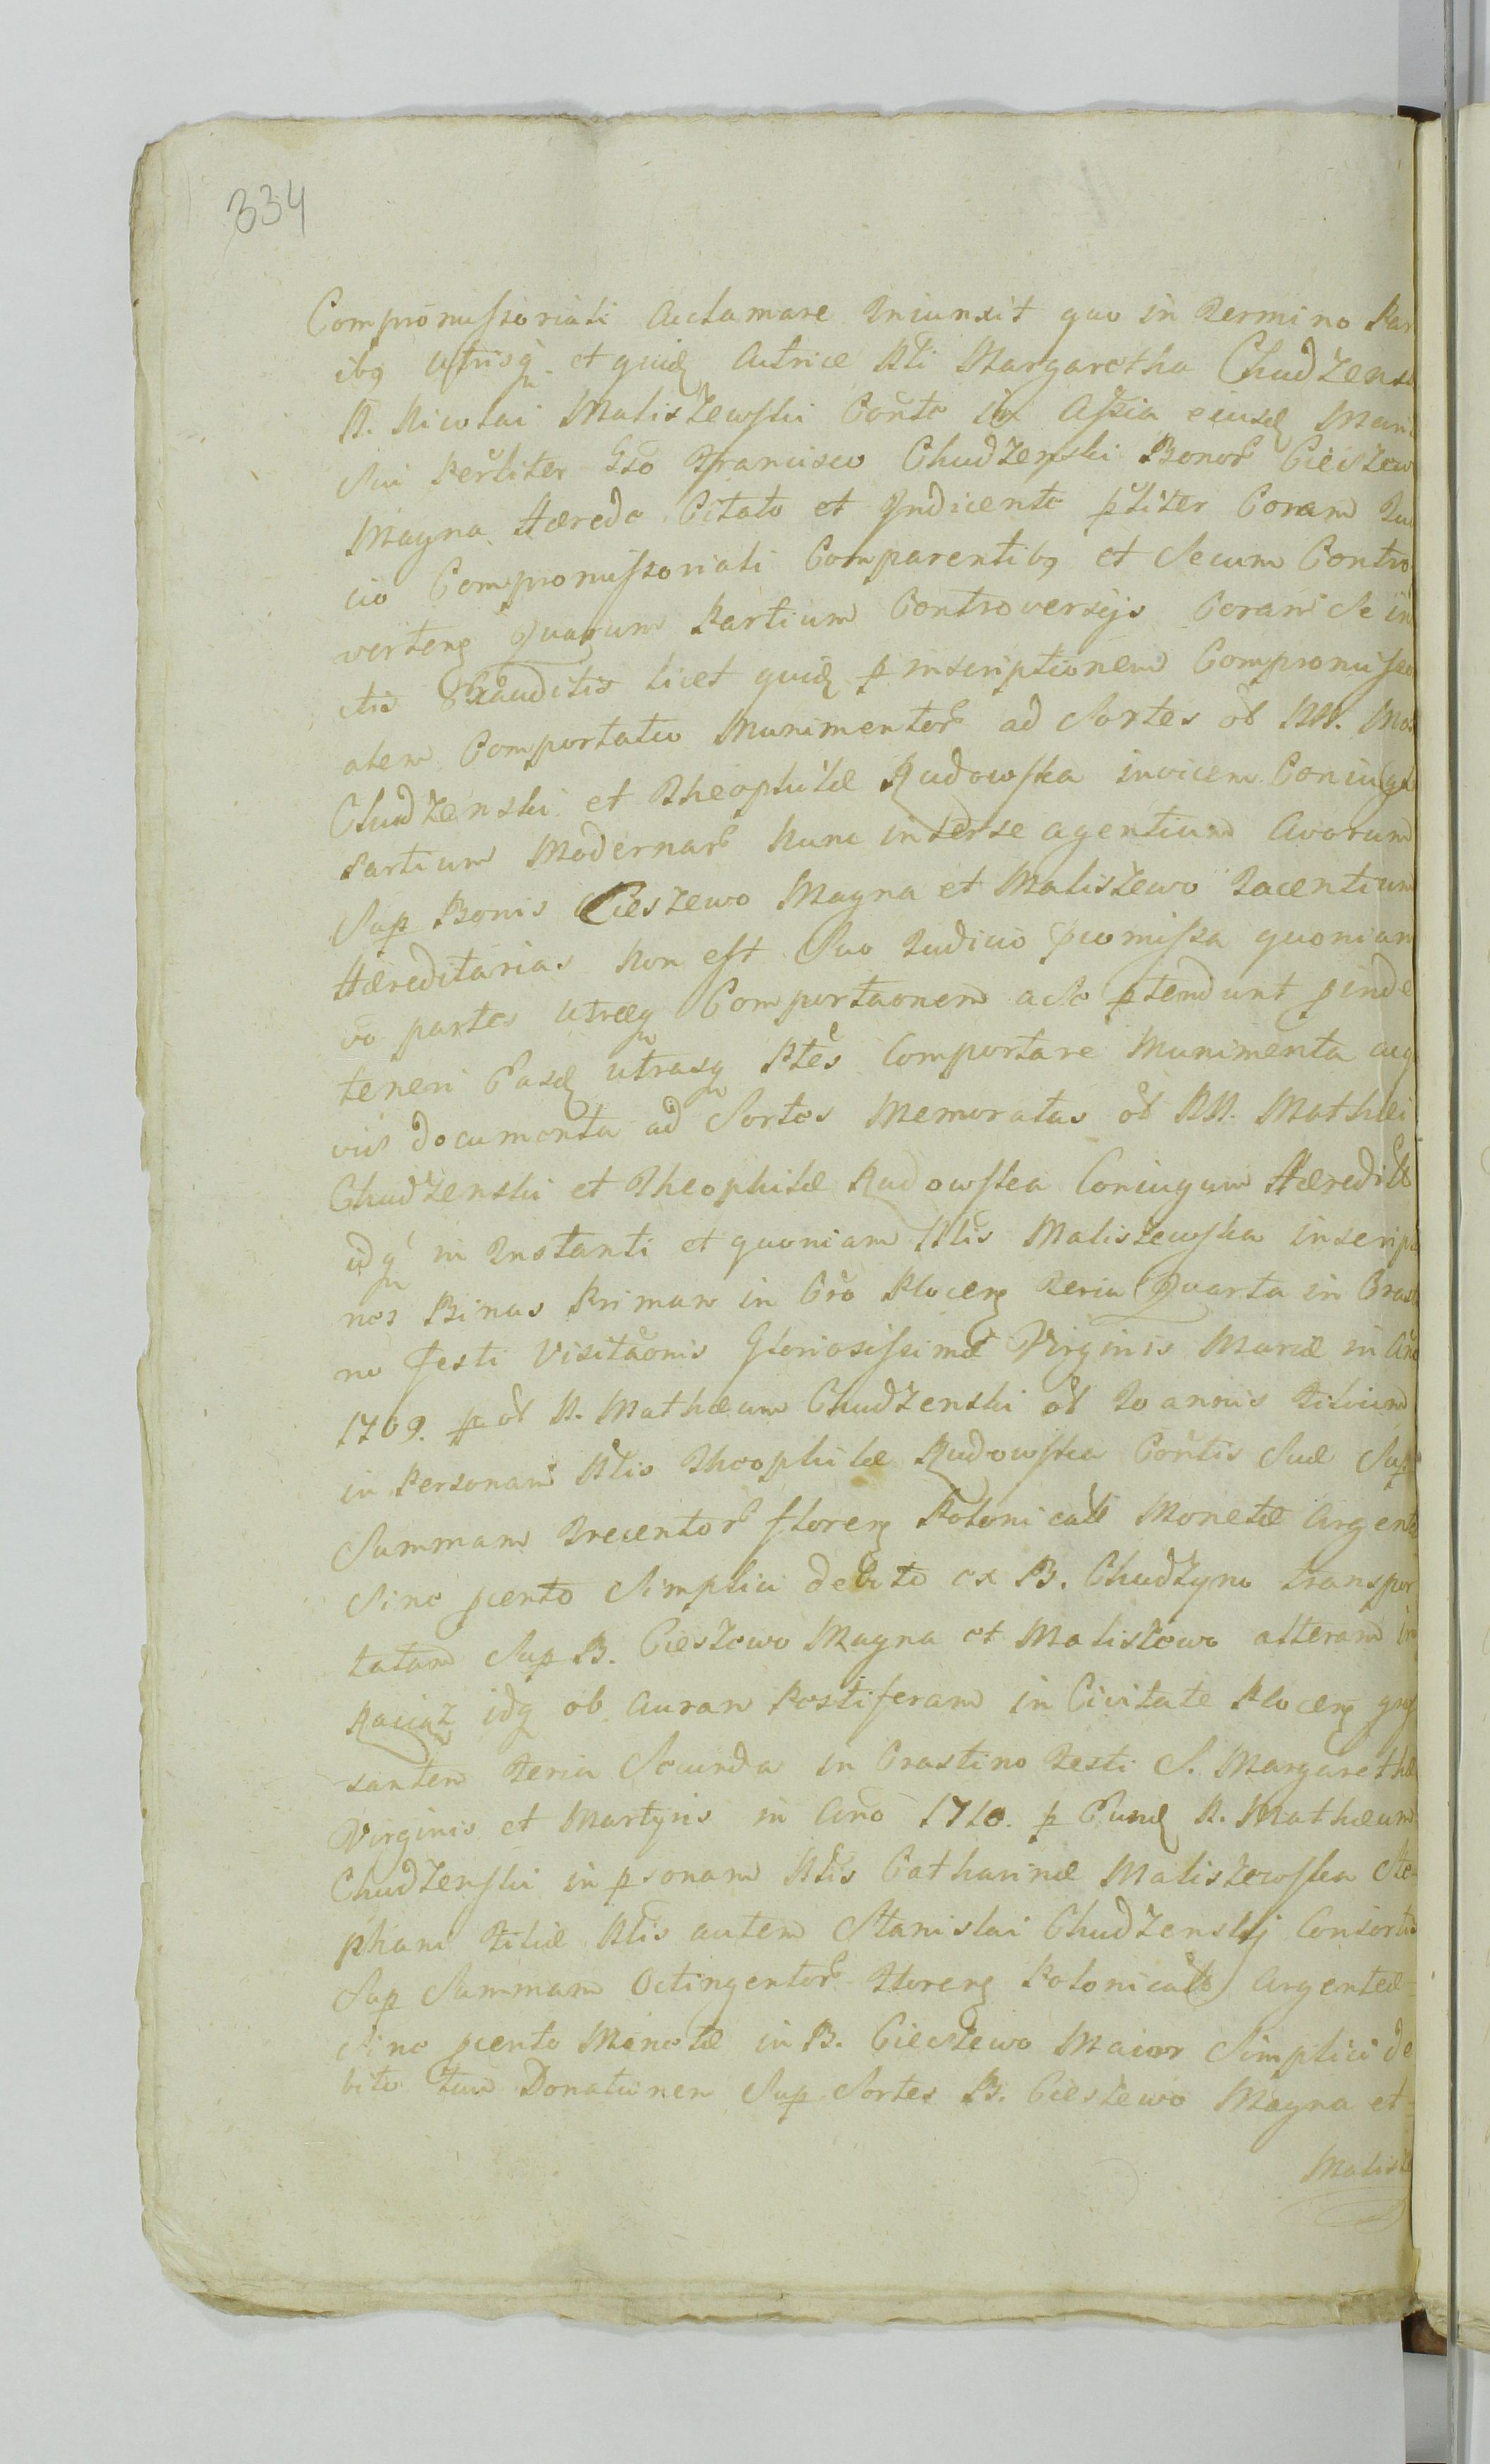 334
Compromissoriali Acclamare Iniunxit quo in Termino Par
ibꝫ Utrisqꝫ et quidꝫ Actrice Nli Margaretha Chudzens
N. Nicolai Maliszewski Conte in Assia eiusdꝫ Mari
Sui Perliter Gso Francisco Chudzenski Bonor Cieszew
Magna Hærede Citato et Indicente pliter Coram Iud
cio Compromissoriali Comparentibꝫ et Secum Contro
vertenꝫ Quarum Partium Controversijs Coram Se in
ctis Exauditis licet quidꝫ p inscriptionem Compromisso
alem Comportatio Munimentor ad Sortes ol NN. Mat
Chudzenski et Theophilæ Rudowska invicem Coniugu
Partium Modernar Nunc inter se agentium Avorum
Sup Bonis Cieszewo Magna et Maliszewo Iacentium
Hæreditarias Non est Suo Iudicio pcomissa quoniam
vo partes utræqꝫ Comportaonem ac se ptendunt pinde
teneri Easdꝫ utrasqꝫ Ptes Comportare Munimenta aeq
vis documenta ad Sortes Memoratas ol NN. Mathæi
Chudzenski et Theophilæ Rudowska Coniugum Hæredit
idqꝫ in Instanti et quoniam Nlis Maliszewska inscripo
nes Binas Primam in Cro Plocenꝫ Feria Quarta in Crasti
no Festi Visitaonis Gloriosissimæ Virginis Mariæ in Ano
1709. p ol N. Mathæum Chudzenski ol Ioannis Filium
in Personam Nlis Theophilæ Rudowska Contis Suæ Sup
Summam Trecentor florenꝫ Polonicall Monetæ Argente
Sine pcento Simplici debito ex B. Chudzyno transpor
tatam Sup B. Cieszewo Magna et Maliszewo alteram in
Raciąż idqꝫ ob Auram Pestiferam in Civitate Plocenꝫ gras
santem Feria Secunda in Crastino Festi S. Margarethæ
Virginis et Martyris in Ano 1710. p Eundꝫ N. Mathæum
Chudzenski in psonam Nlis Catharinæ Maliszewska Ste-
phani Filiæ Nlis autem Stanislai Chudzenskij Consortis
Sup Summam Octingentor Florenꝫ Polonicall Argenteæ
Sine pcento Monetæ in B. Cieszewo Maior Simplici de
bito tum Donationem Sup Sortes B. Cieszewo Magna et
Malisze